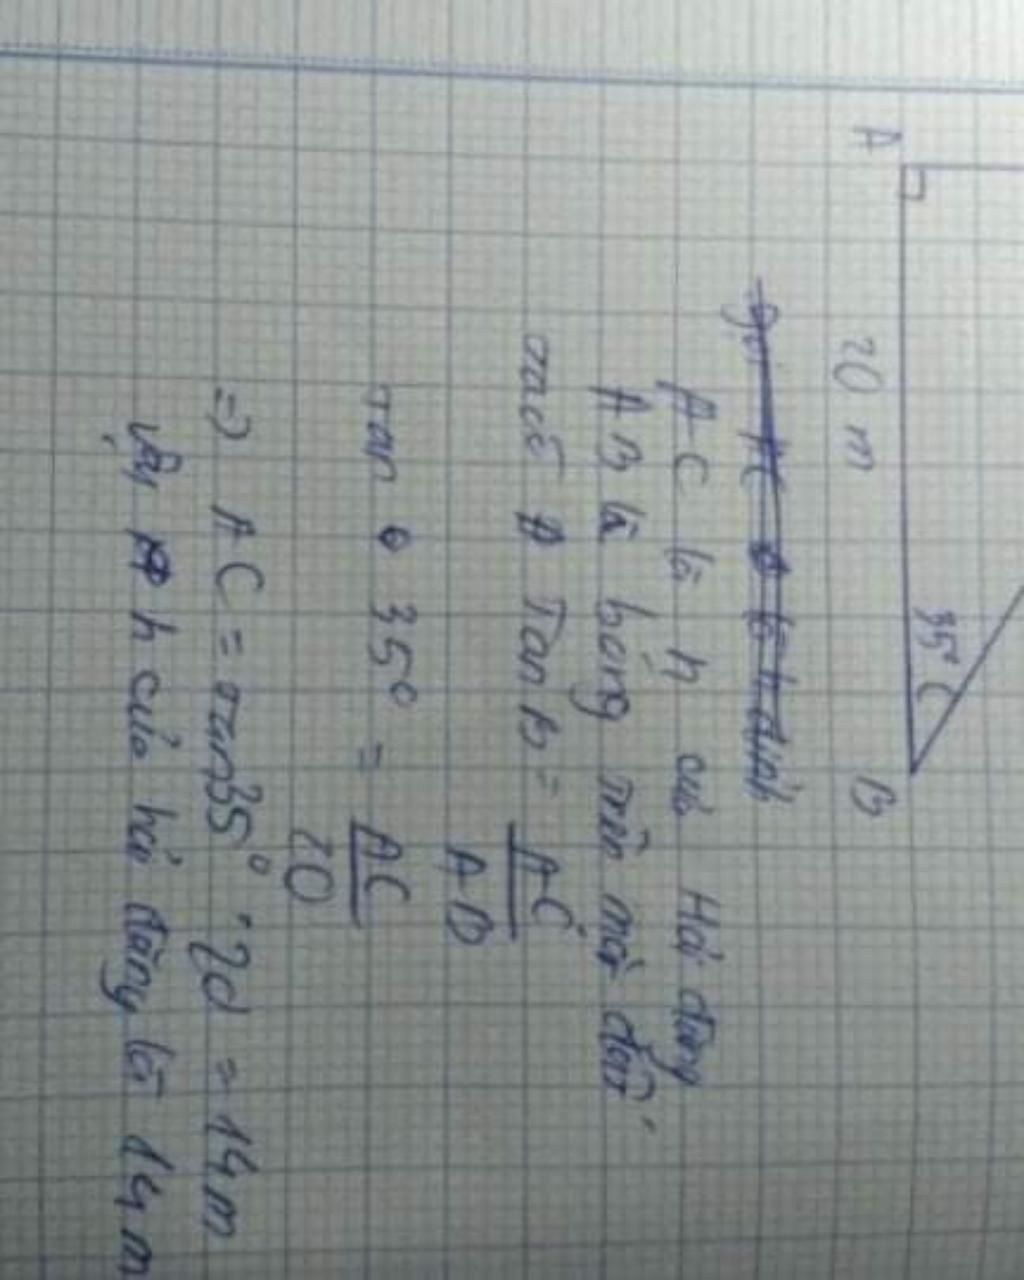 A
20 m
35°
B
Gọi AC là h đỉnh
AC là h của Hải đăng
AB là bóng trên mặt đất
ta có Tan B = AC
AB
Tan 35° = AC
20
=> AC = tan35° . 20 = 14 m
Vậy h của hải đăng là 14 m